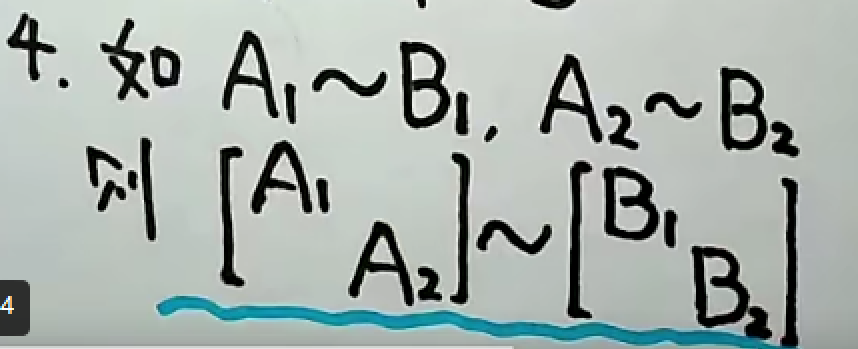 4. 如 A₁~B₁, A₂~B₂
则 [A₁
A₂] ~ [B₁
B₂]
4